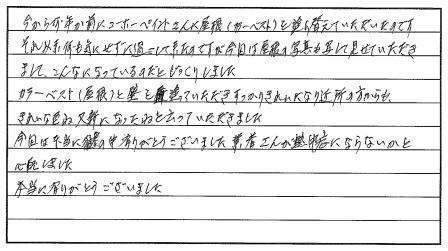 今から何年か前にニホーペイントさんに屋根(カーベスト)を塗り替えていただいたのです
それ以来何も気にせずに過ごして来たのですが今回は屋根の写真も写して見せていただき
まして、こんなになっているのだとびっくりしました
カラーベスト(屋根)と壁を塗っていただきすっかりきれいになり近所の方からも
きれいな色ね 又新になったねと云っていただきました
今回は本当に暑い中有りがとうございました 業者さんが熱中症にならないかと
心配しました
本当に有りがとうございました